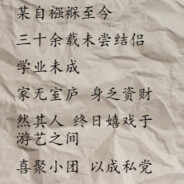 某自襁褓至今
三十余载未尝结侣
学业未成
家无室庐 身乏资财
然其人 终日嬉戏于
游艺之间
喜聚小团 以成私党